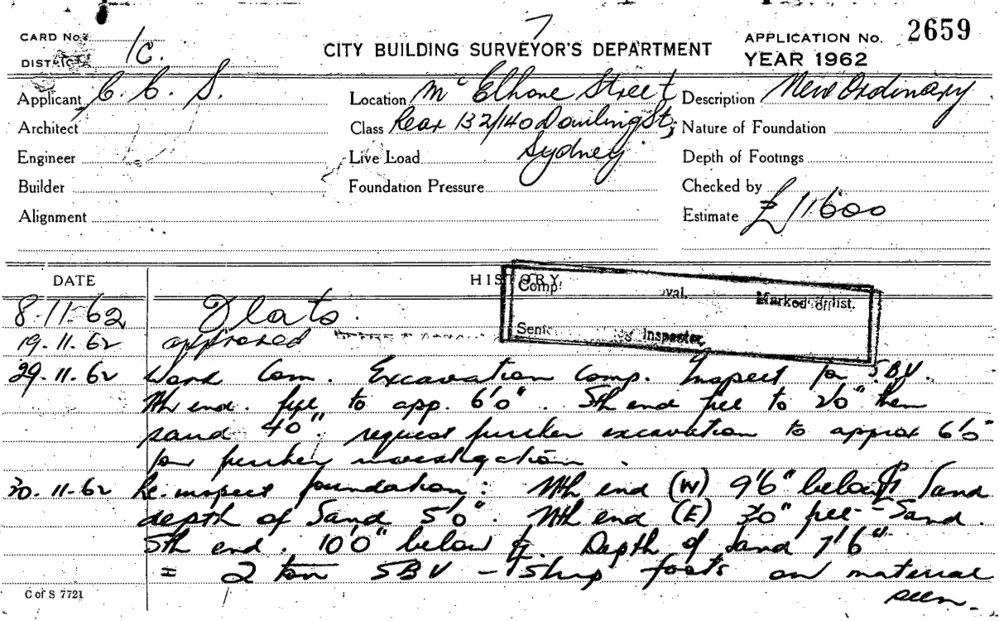 CARD No. 1C. 7 APPLICATION No. 2659
DISTRICT CITY BUILDING SURVEYOR'S DEPARTMENT YEAR 1962
Applicant C. C. S. Location McElhone Street Description New Ordinary
Architect Class Rear 132/140 Dowling St, Nature of Foundation
Engineer Live Load Sydney. Depth of Footings
Builder Foundation Pressure Checked by
Alignment Estimate £11600
DATE HISTORY
Comp. oval. Marked off list.
8.11.62 Flats.
Sent Inspector,
19.11.62 approved
29.11.62 Work Com. Excavation comp. Inspect for SBV.
Nth end. fill to app. 6'0". Sth end fill to 2'0" then
sand 4'0". request further excavation to approx 6'0"
for further investigation.
30.11.62 Re.inspect foundation: Nth end (W) 9'6" below Sand
depth of Sand 5'0". Nth end (E) 3'0" fill - Sand.
Sth end. 10'0" below Depth of Sand 7'6"
= 2 ton SBV - Strip foots on material
seen.
C of S 7721